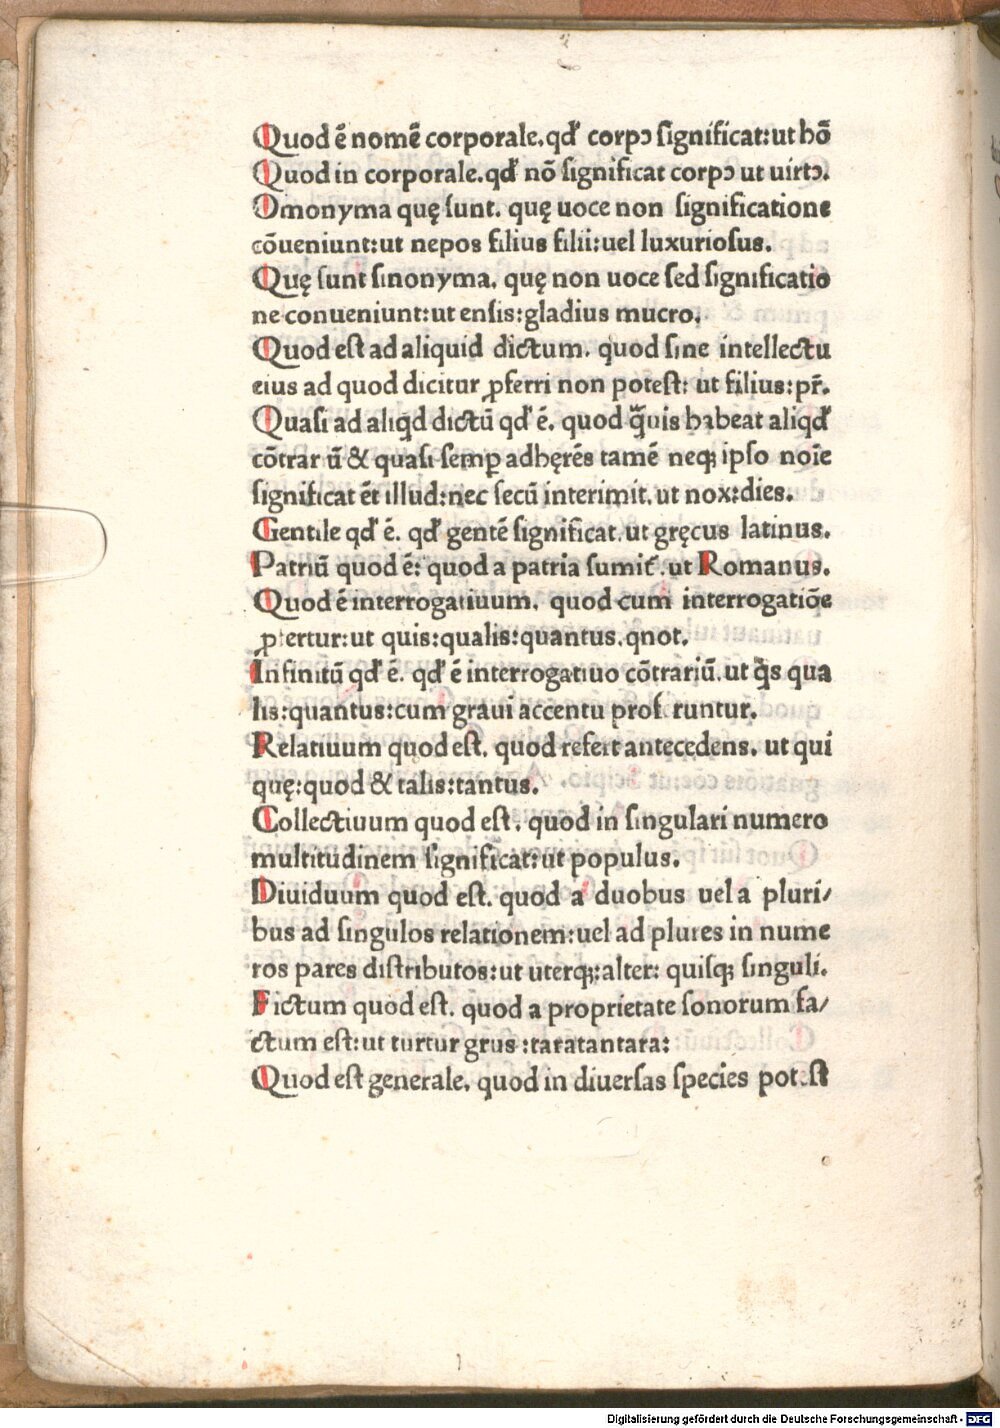 Quod ē nomē corporale. qđ corpꝯ significat: ut hō
Quod in corporale. qđ nō significat corpꝯ ut uirtꝯ.
Omonyma quę sunt. quę uoce non significatione
cōueniunt: ut nepos filius filii: uel luxuriosus.
Quę sunt sinonyma. quę non uoce sed significatio
ne conueniunt: ut ensis: gladius mucro.
Quod est ad aliquid dictum. quod sine intellectu
eius ad quod dicitur ꝓferri non potest: ut filius: pr̄.
Quasi ad aliqd dictū qđ ē. quod q̄uis habeat aliqđ
cōtrar ū & quasi semꝑ adhęrēs tamē neqꝫ ipso noīe
significat ēt illud: nec secū interimit. ut nox: dies.
Gentile qđ ē. qđ gentē significat. ut gręcus latinus.
Patriū quod ē: quod a patria sumit̄. ut Romanus.
Quod ē interrogatiuum. quod cum interrogatiōe
ꝓfertur: ut quis: qualis: quantus. qnot.
Infinitū qđ ē. qđ ē interrogatiuo cōtrariū. ut q̄s qua
lis: quantus: cum graui accentu prof runtur.
Relatiuum quod est. quod refert antecedens. ut qui
quę: quod & talis: tantus.
Collectiuum quod est. quod in singulari numero
multitudinem significat: ut populus.
Diuiduum quod est. quod a duobus uel a pluri/
bus ad singulos relationem: uel ad plures in nume
ros pares distributos: ut uterqꝫ: alter: quisqꝫ singuli.
Fictum quod est. quod a proprietate sonorum fa/
ctum est: ut turtur grus: taratantara:
Quod est generale. quod in diuersas species potest
Digitalisierung gefördert durch die Deutsche Forschungsgemeinschaft - DFG